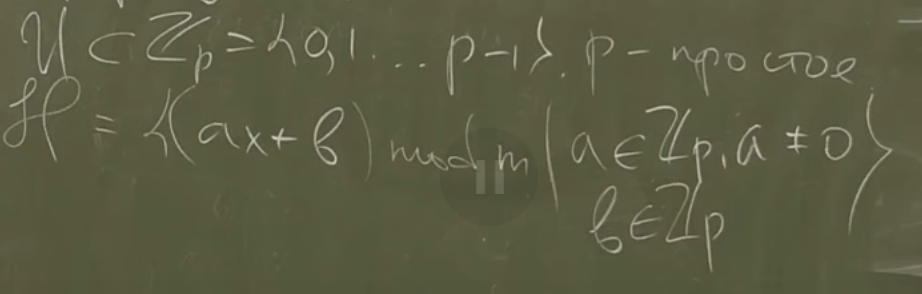 U ⊂ ℤp = {0,1 ... p-1}. p - простое
ℋ = {(ax + b) mod m | a ∈ ℤp, a ≠ 0
b ∈ ℤp}